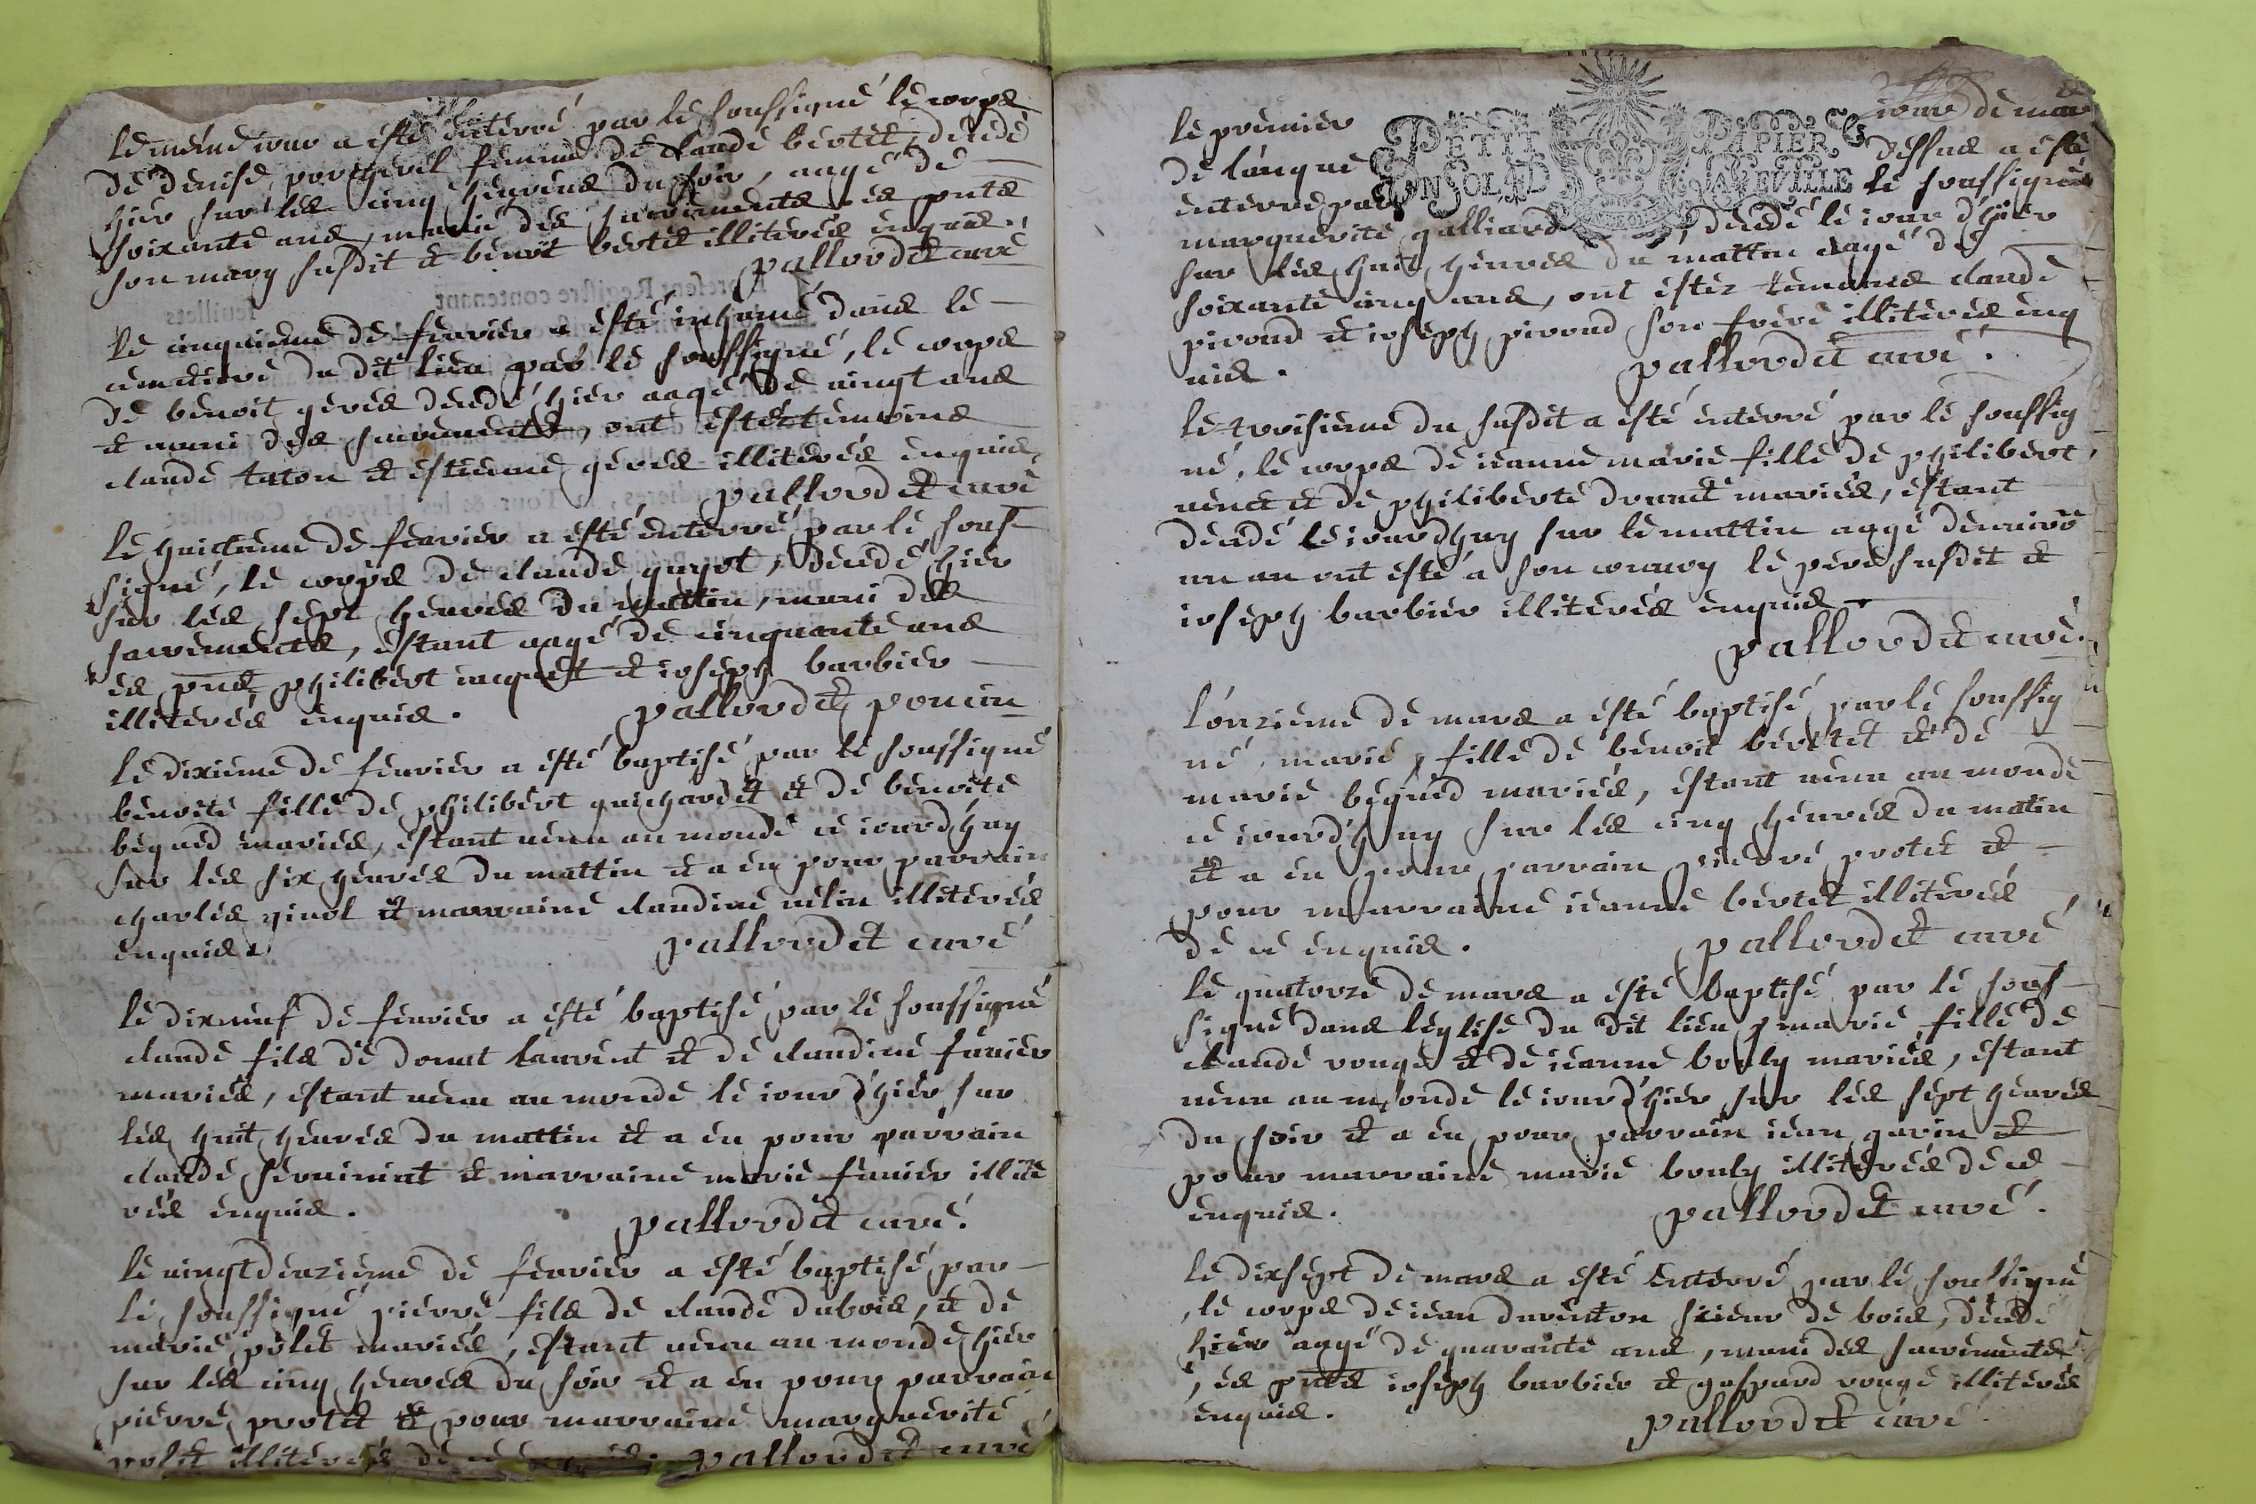 le méme iour a esté enterré par le soussigné le corps
de denise porcheret femme de claude bertet, decedé
hier sur les cinq heures du soir, aagé de
soixante ans, munie des sacrements, és pnts
son mary susdit et benoit bertet illiterés enquis.
pallordet curé
le cinquieme de feurier a esté inhumé dans le
cimetiere du dit lieu par le soussigné, le corps
de benoit geres decedé hier aagé de uingt ans
et muni des sacrements, ont estez temoins
claude taton et estienne geres illiterés enquis,
pallordet curé
le huictieme de feurier a esté enterré par le sous-
signé, le corps de claude guyot, decedé hier
sur les sept heures du mattin, muni des
sacrements, estant aagé de cinquante ans
és pnts philibert iacquet et ioseph barbier
illiterés enquis. pallordet
le dixieme de feurier a esté baptisé par le soussigné
benoite fille de philibert guichardet et de benoite
begued mariés, estant uenu au monde ce iourdhuy
sur les six heures du mattin et a eu pour parrain
charles et marraine claudine uelin illiterés
enquis. pallordet curé
le dixneuf de feurier a esté baptisé par le soussigné
claude fils de donat laurent et de claudine feurier
mariés, estant uenu au monde le iour d'hier sur
les huit heures du mattin et a eu pour parrain
claude et marraine marie illite
rés enquis. pallordet curé.
le uingtdeuzieme de feurier a esté baptisé par
le soussigné pierre fils de claude dubois, et de
marie polet mariés, estant uenu au monde hier
sur les cinq heures du soir et a eu pour parrain
pierre protet et pour marraine marguerite
polet illiterés de ce enquis. pallordet curé
le premier iour de mars
PETIT PAPIER
de l'anque dessus a esté
ON SOL 4D LA FEVILLE
enterré par le soussigné
marguerite galliard, decedé le iour d'hier
sur les huit heures du mattin aagé de
soixante cinq ans, ont estez temoins claude
piroud et ioseph piroud son frere illiterés enq
uis. pallordet curé.
le troisieme du susdit a esté enterré par le soussig
né, le corps de ieanne marie fille de philibert
uenet et de philiberte drunet mariés, estant
decedé le iourdhuy sur le mattin aagé denuirõ
un an ont esté a son conuoy le pere susdit et
ioseph barbier illiterés enquis
pallordet curé.
l'onzieme de mars a esté baptisé par le soussig
né, marie, fille de benoit bertet et de
marie begued mariés, estant uenu au monde
ce iourd'huy sur les cinq heures du matin
et a eu pour parrain pierre protet et
pour marraine ieanne bertet illiterés
de ce enquis. pallordet curé
le quatorze de mars a esté baptisé par le sous-
signé dans leglise du dit lieu marie fille de
claude rouge et de ieanne bouly mariés, estant
uenu au monde le iour d'hier sur les sept heures
du soir et a eu pour parrain iean garin et
pour marraine marie bouly illiterés de ce
enquis. pallordet curé.
le dixsept de mars a esté enterré par le soussigné
, le corps de iean durenton scieur de bois, decedé
hier aagé de quarante ans, muni des sacrements
, és pnts ioseph barbier et gaspard rouge illiterés
enquis. pallordet curé.